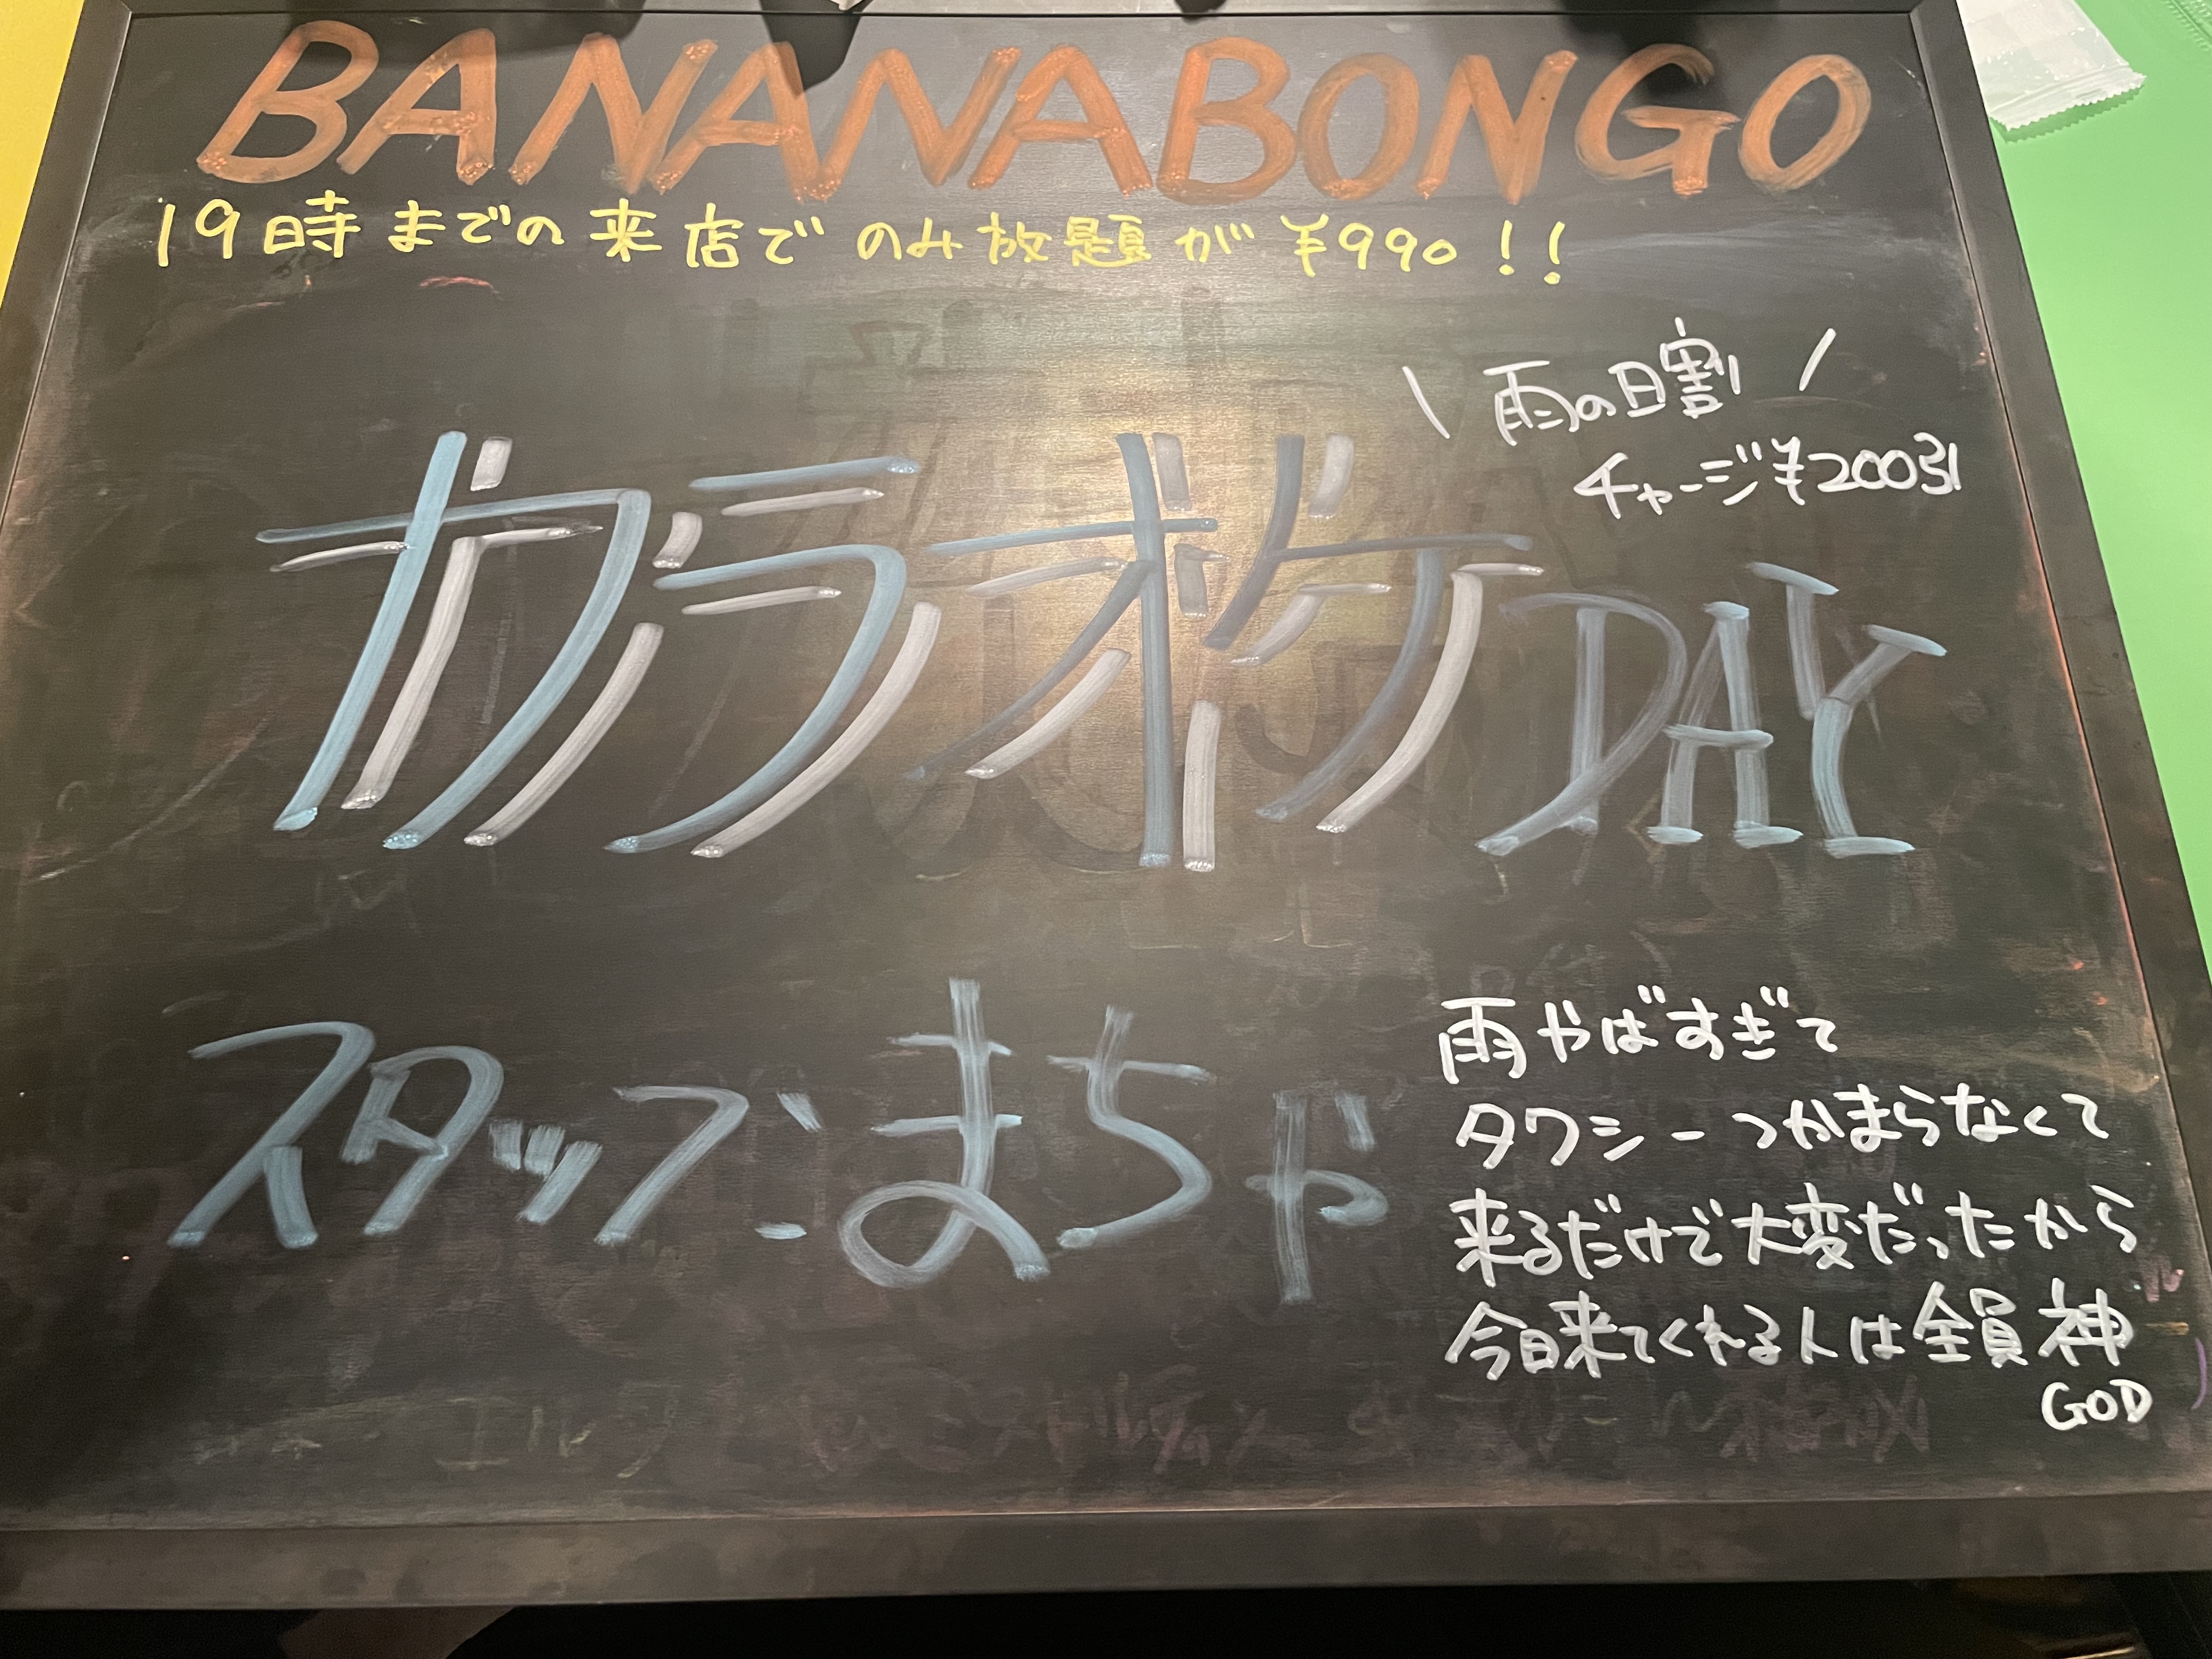 BANANABONGO
19時までの来店でのみ放題が¥990!!
\ 雨の日割 /
チャージ¥200引
カラオケDAY
スタッフ:まちゃ
雨やばすぎて
タクシーつかまらなくて
来るだけで大変だったから
今日来てくれる人は全員神
GOD